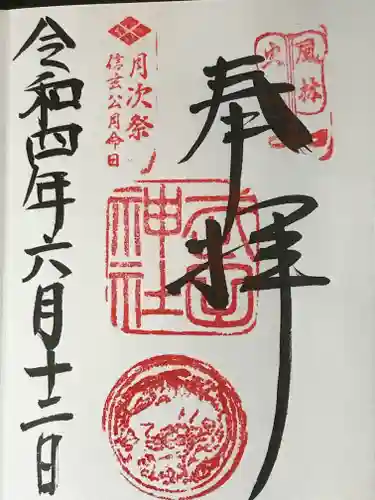 奉拝
風林
火
月次祭
信玄公月命日
武田
神社
令和四年六月十二日